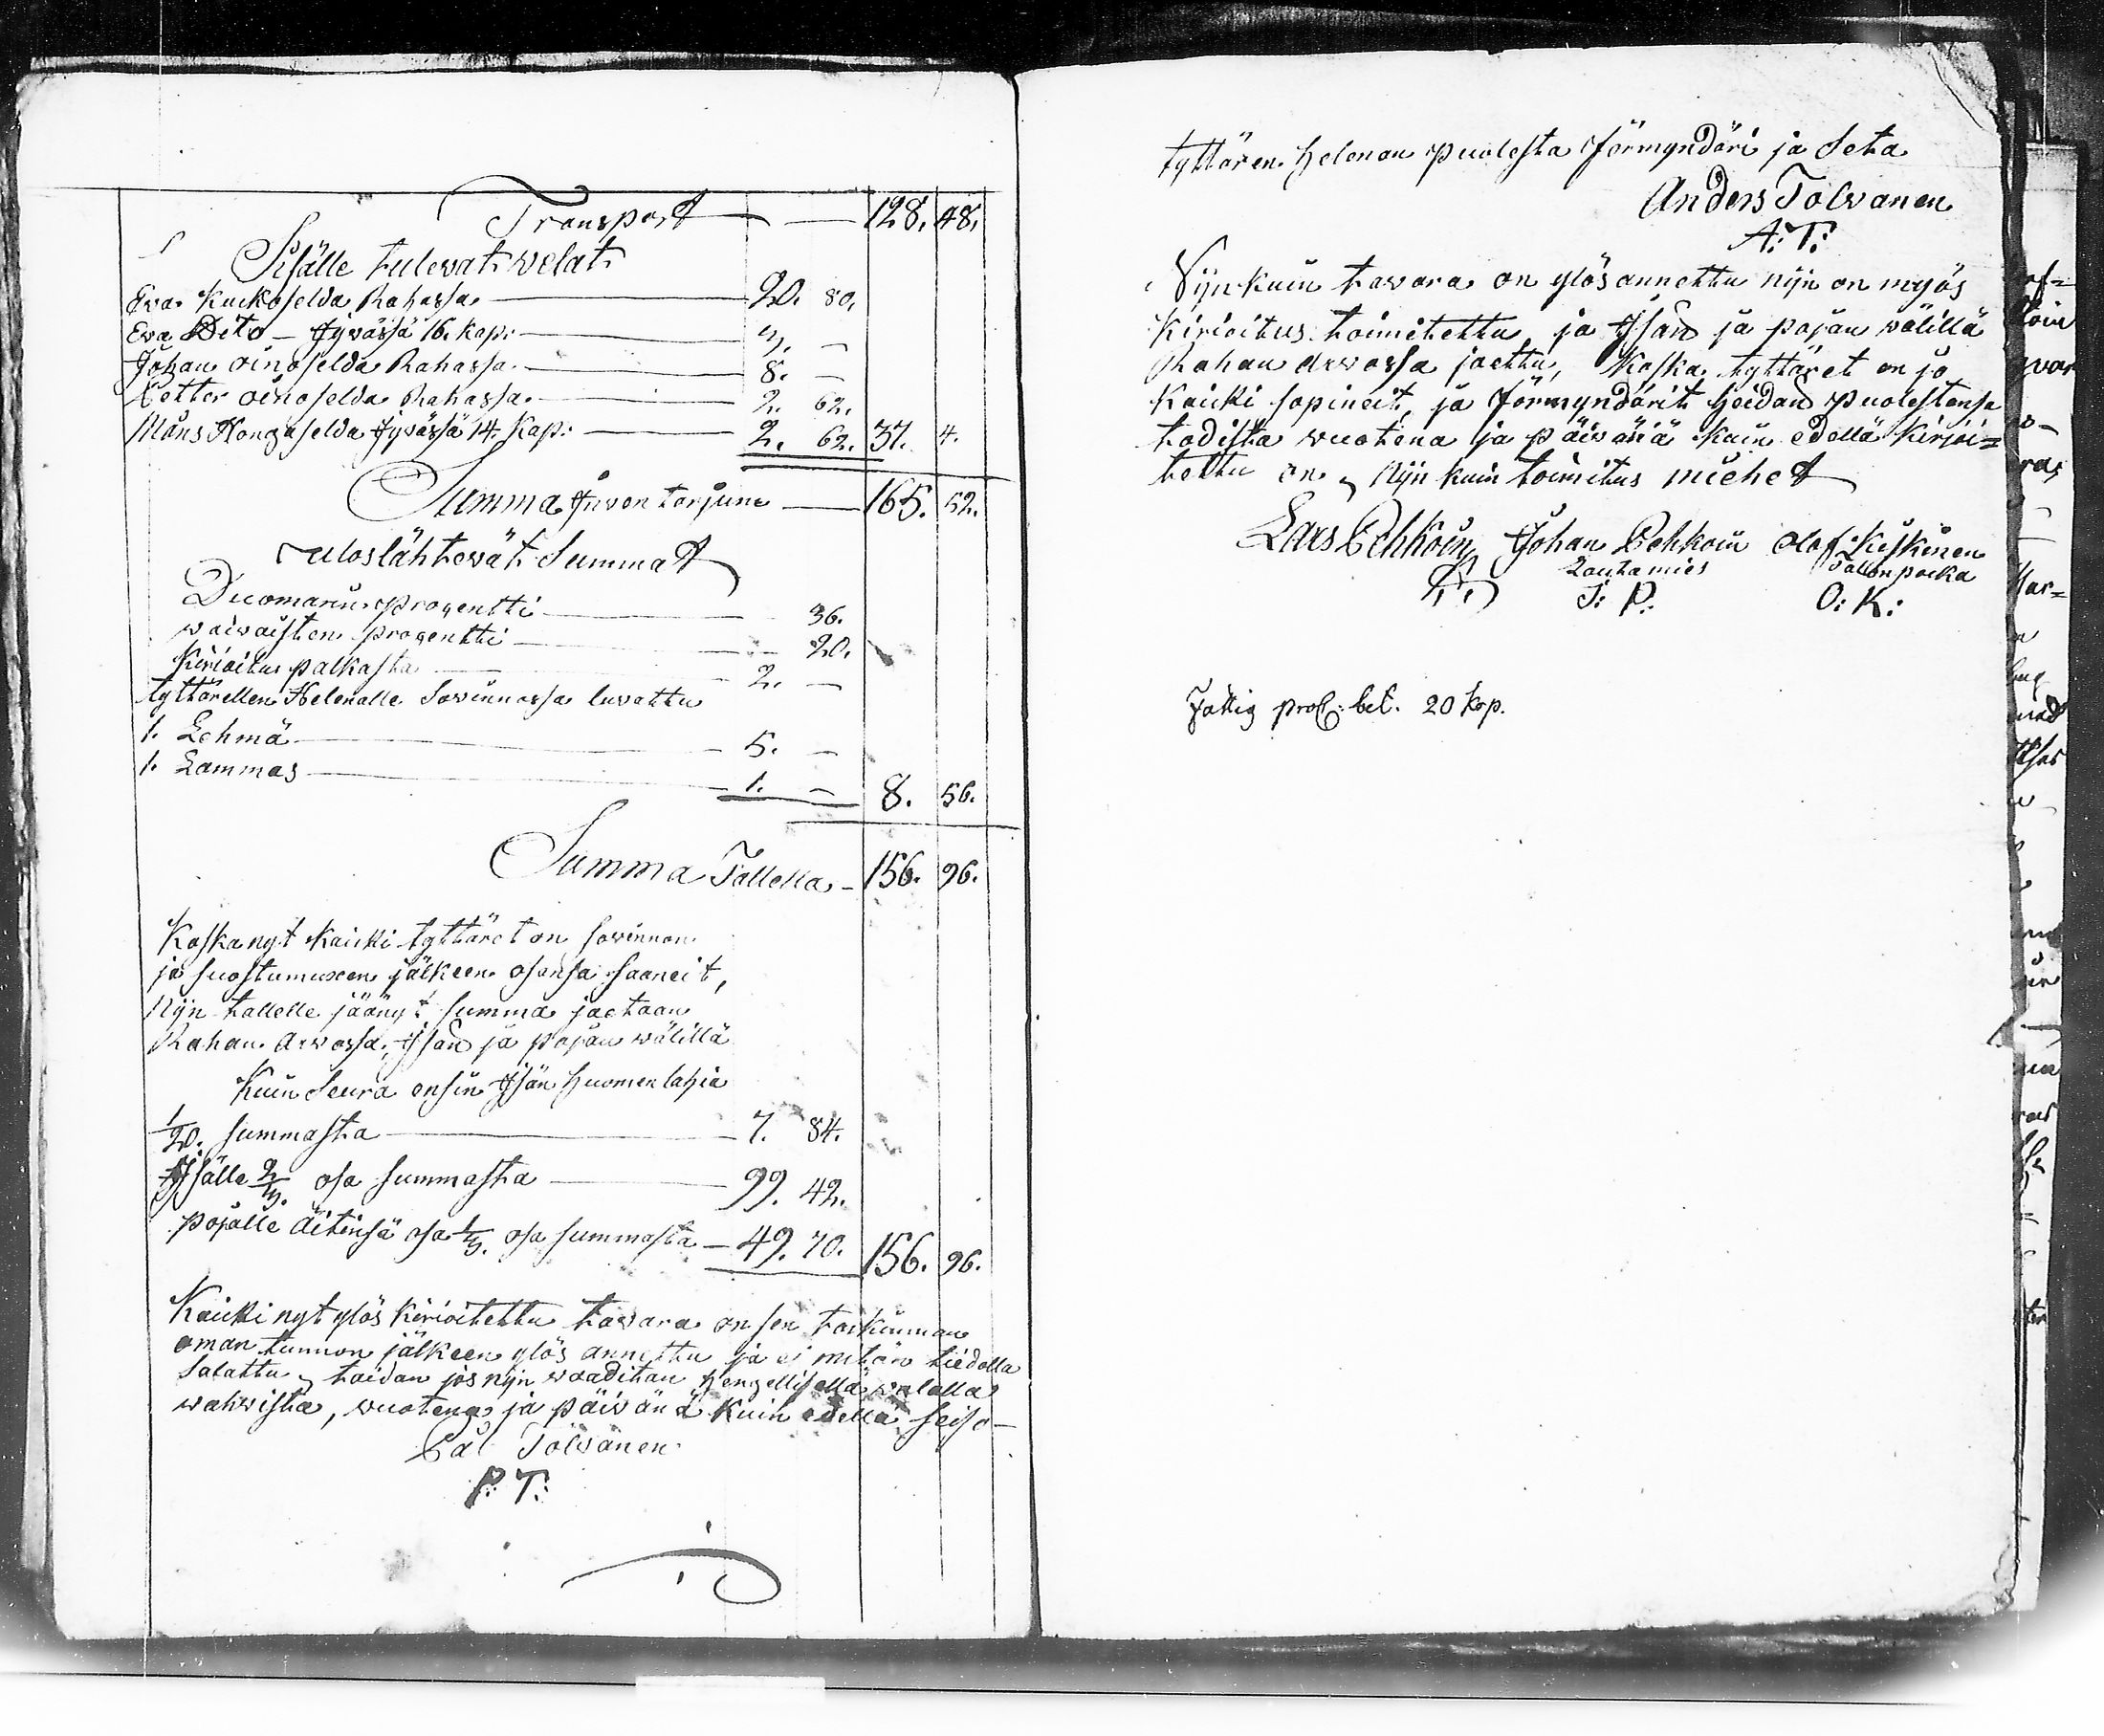 Transport — 128. 48.
Sisälle tulevat velat
Eva Kuckoselda Rahassa — 20. 80.
Eva Dito — Jyvässä 16. kap: — 3. —
Johan oinoselda Rahassa — 8. —
Petter oinoselda Rahassa — 2. 62.
Måns Hongaselda Jyvässä 14. Kap: — 2. 62. 37. 4.
Summa Inventarjum — 165. 52.
Uloslähtevät Summat
Duomarin progentti — 36.
waivaisten progentti — 20.
Kirioitus palkasta — 2. —
tyttärellen Helenalle Sovinnossa luvattu
1. Lehmä — 5. —
1. Lammas — 1. — 8. 56.
Summa Tallella — 156. 96.
Koska nyt kaicki tyttäret on sovinnon
ja suostumuxen jälkeen osansa saaneit,
Nijn tallelle jäänyt summa jaetaan
Rahan Arvossa, Isän ja pojan wälillä
Kuin Seura ensin Isän huomenlahja
1/20. summasta — 7. 84.
Isälle 2/3. osa summasta — 99. 42.
pojalle äitinsä osa 1/3. osa summasta — 49. 70. 156. 96.
Kaicki nyt ylös kirioitettu tavara on sen
oman tunnon jälkeen ylös annettu ja ei mitän tiedolla
Salattu, taidan jos nijn waaditan hengellisellä walalla
wahwista, wuotena ja päivänä kuin edellä seiso —
Pål Tolvanen
P: T:
tyttären Helenan puolesta förmyndäri ja Setä
Anders Tolvanen
A: T:
Nijnkuin tavara on ylösannettu nijn on myös
kirioitus toimitettu, ja Isän ja pojan wälillä
Rahan Arvossa jaettu, Koska tyttäret on jo
kaicki sopineit, ja förmyndärit heidän puolestansa
todista wuotena ja päivänä kuin edellä kirjoi=
tettu on, Nijn kuin toimitus miehet
Lars Pehkoin Johan Pehkoin Olof Kiskinen
Lautamies Tallonpoika
J: P: O: K:
Fattig proc: bet. 20 kop.